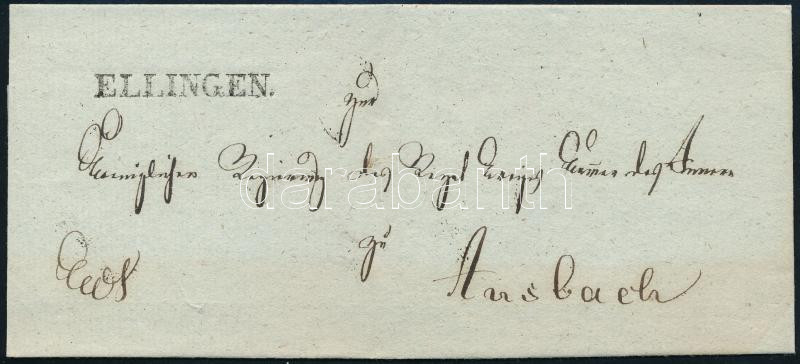 ELLINGEN.
zur
Königlichen Regierung des Rezat Kreises Kammer des Innern
zu
Ansbach
darabanth